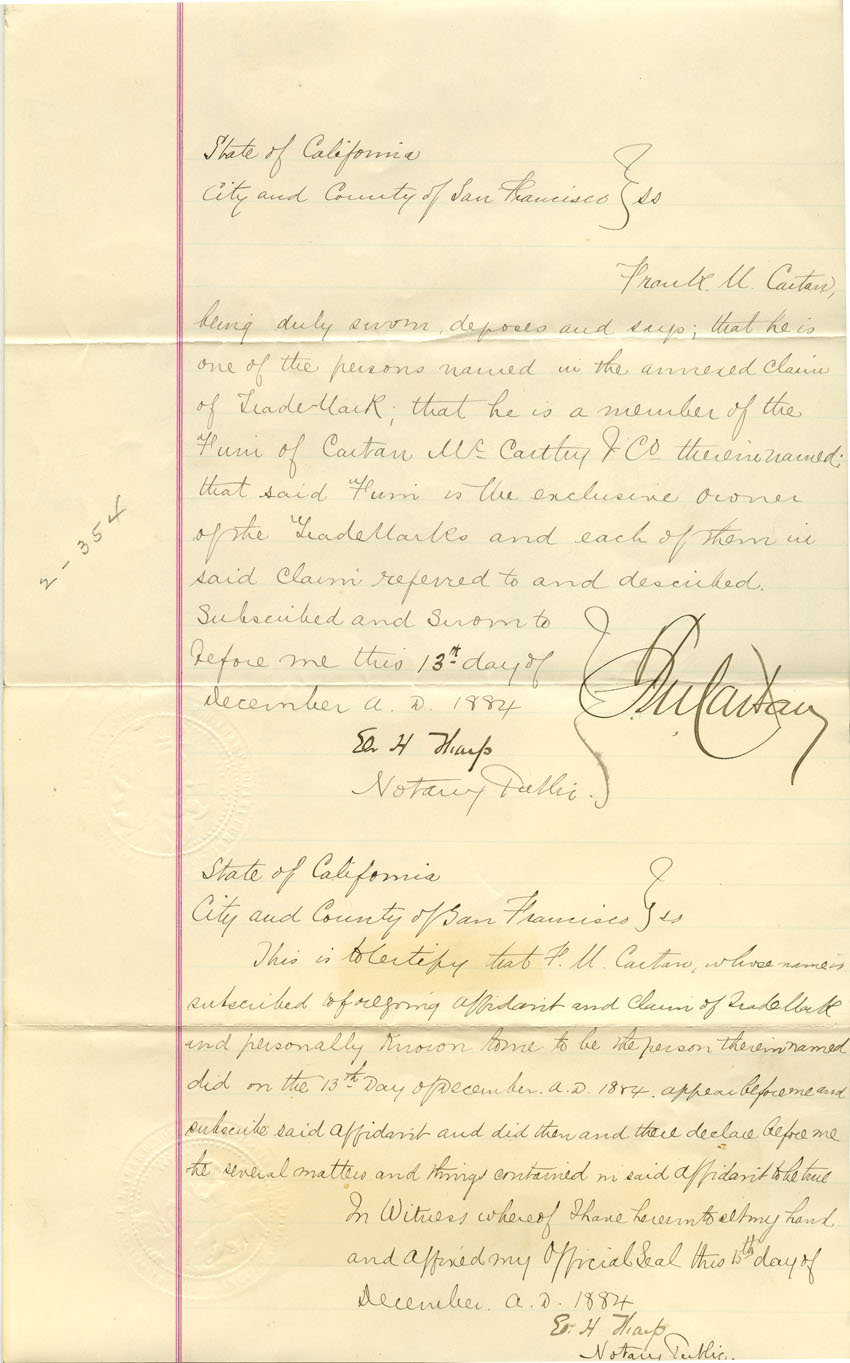 State of California
City and County of San Francisco } ss
Frank. M. Cartan,
being duly sworn, deposes and says; that he is
one of the persons named in the annexed claim
of TradeMark; that he is a member of the
Firm of Cartan McCarthy & Co therein named;
that said Firm is the exclusive owner
of the TradeMarks and each of them in
said claim referred to and described.
2-354
Subscribed and Sworn to
before me this 13th day of
December A. D. 1884
F. M. Cartan
H Tharp
Notary Public.
State of California
City and County of San Francisco } ss
This is to Certify that F. M. Cartan, whose name is
subscribed to foregoing affidavit and Claim of TradeMark
and personally Known to me to be the person therein named
did on the 13th Day of December. A. D. 1884. appear before me and
subscribe said Affidavit and did then and there declare before me
the several matters and things contained in said Affidavit to be true
In Witness whereof I have hereunto set my hand
and Affixed my Official Seal this day of
December. A. D. 1884
H Tharp
Notary Public.